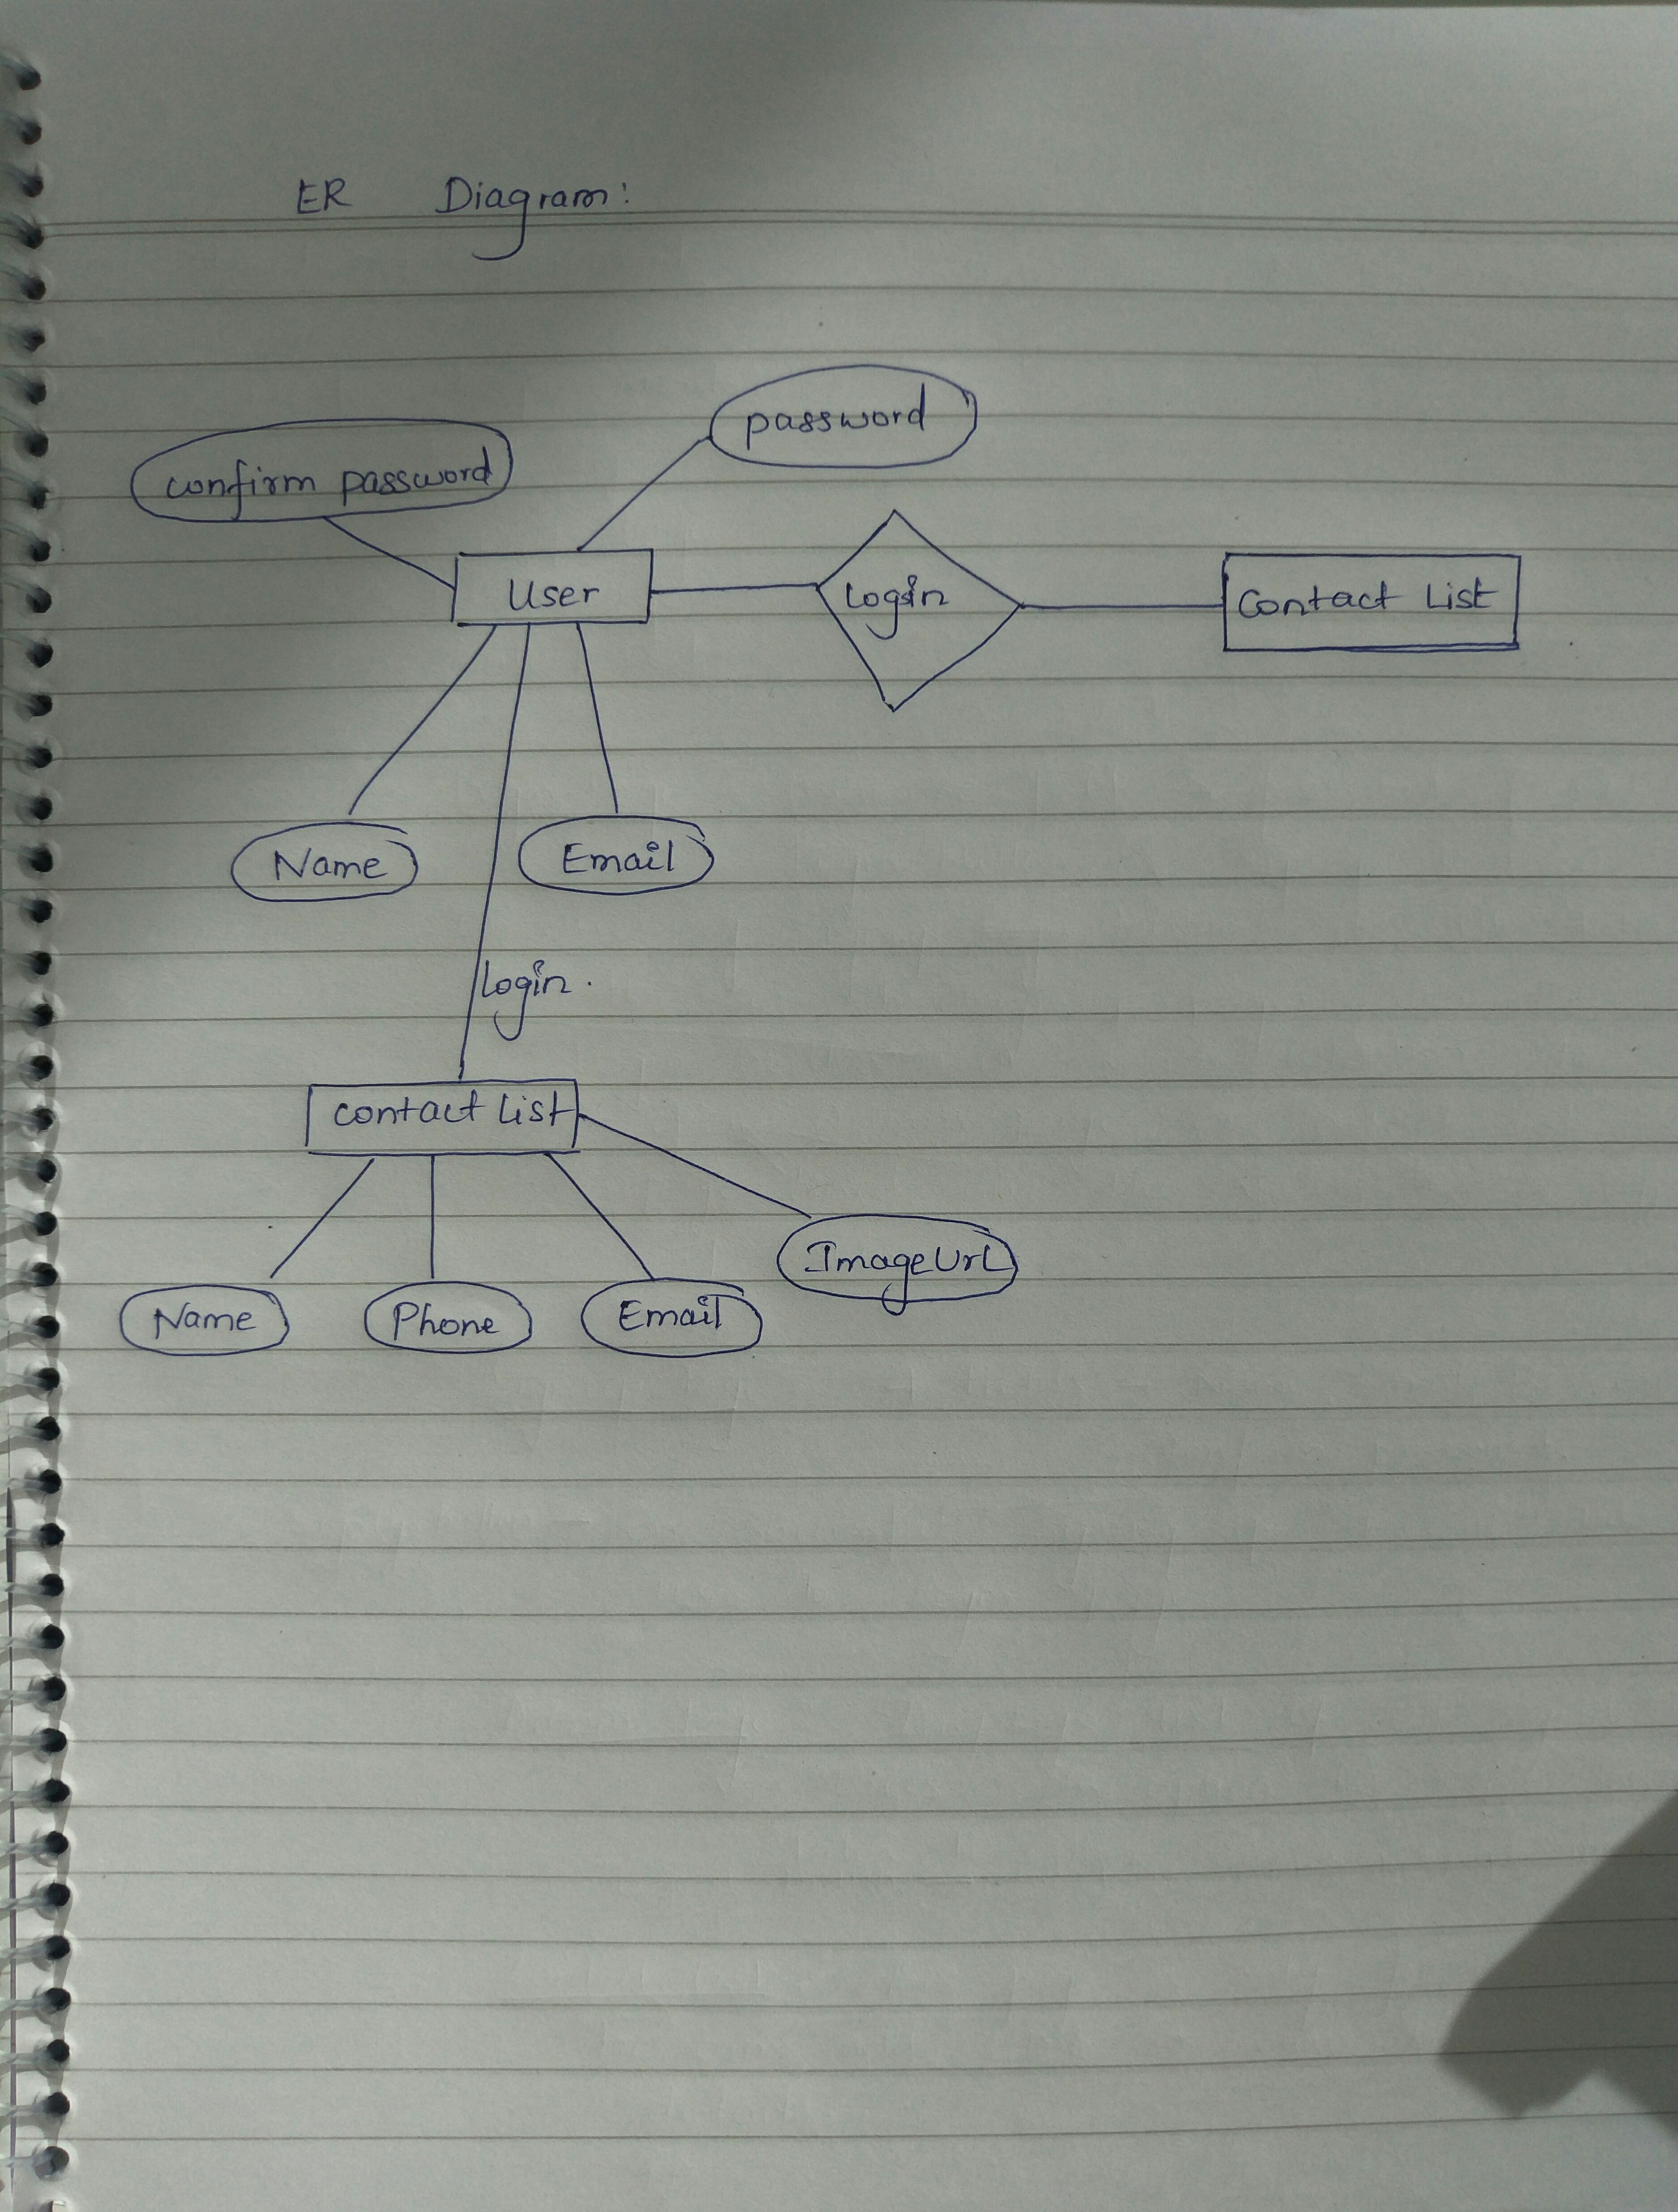 ER Diagram:
password
confirm password
User
Login
Contact List
Name
Email
Login.
contact List
ImageUrl
Name
Phone
Email